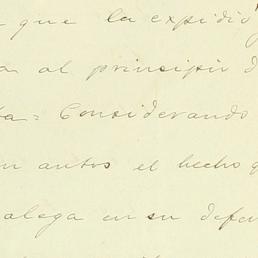 que la expidió
a al principio d
ta = Considerando
n autos el hecho q
alega en su defen